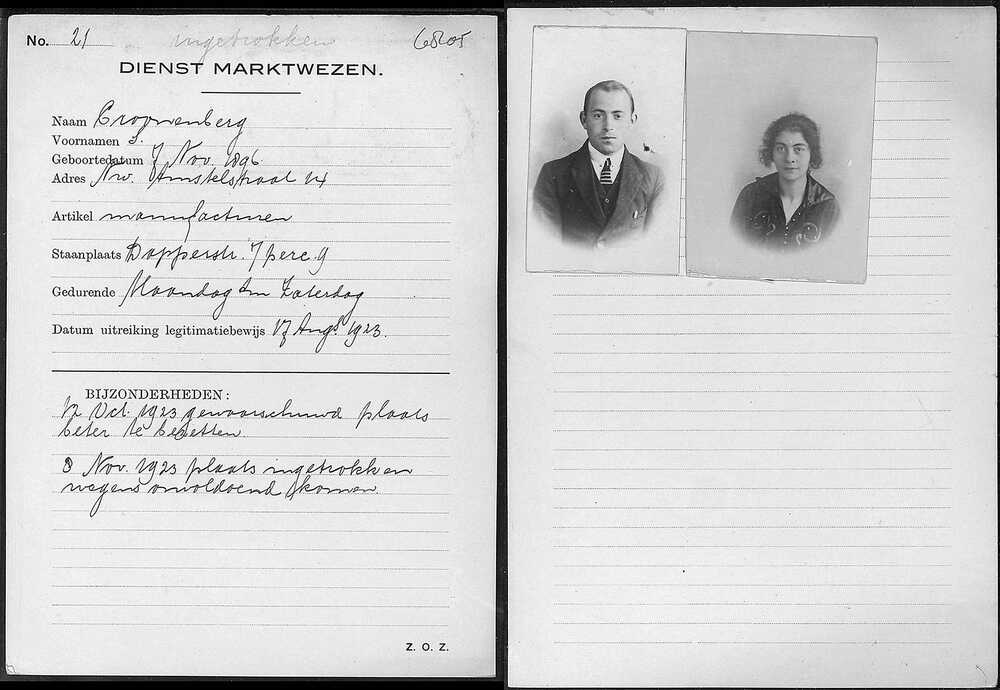 No. 21 ingetrokken 6805
DIENST MARKTWEZEN.
Naam Croonenberg
Voornamen S.
Geboortedatum 7 Nov. 1896
Adres Nw. Amstelstraat 14
Artikel manufacturen
Staanplaats Dapperstr. 7 perc. 9
Gedurende Maandag t/m Zaterdag
Datum uitreiking legitimatiebewijs 17 Aug. 1923.
BIJZONDERHEDEN:
12 Oct. 1923 gewaarschuwd plaats
beter te bezetten.
8 Nov. 1923 plaats ingetrokken
wegens onvoldoend komen.
Z. O. Z.